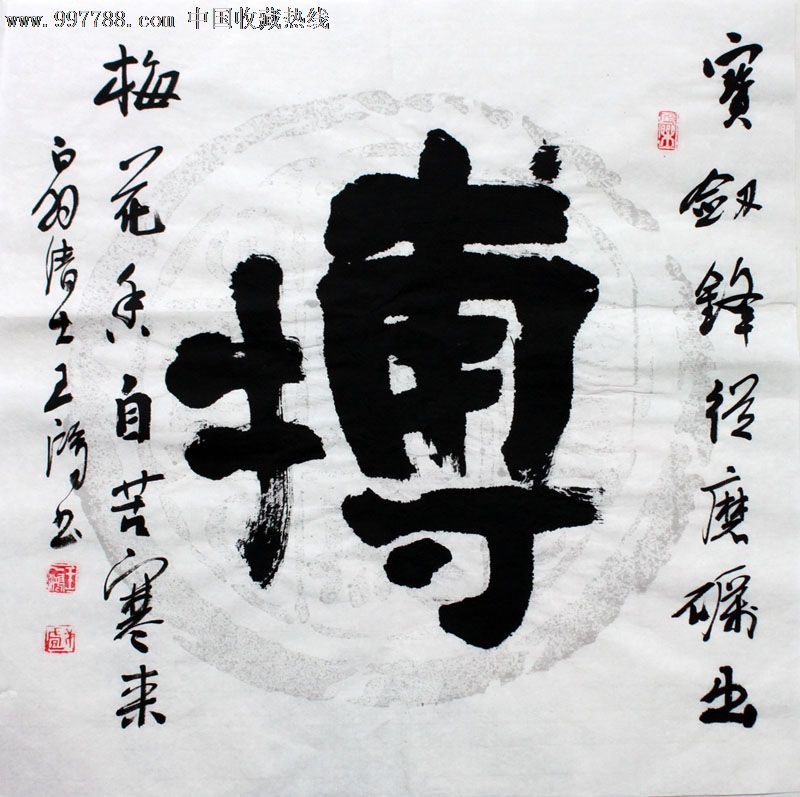 www.997788.com 中国收藏热线
寶劔鋒從磨礪出
搏
梅花香自苦寒来
清士王书